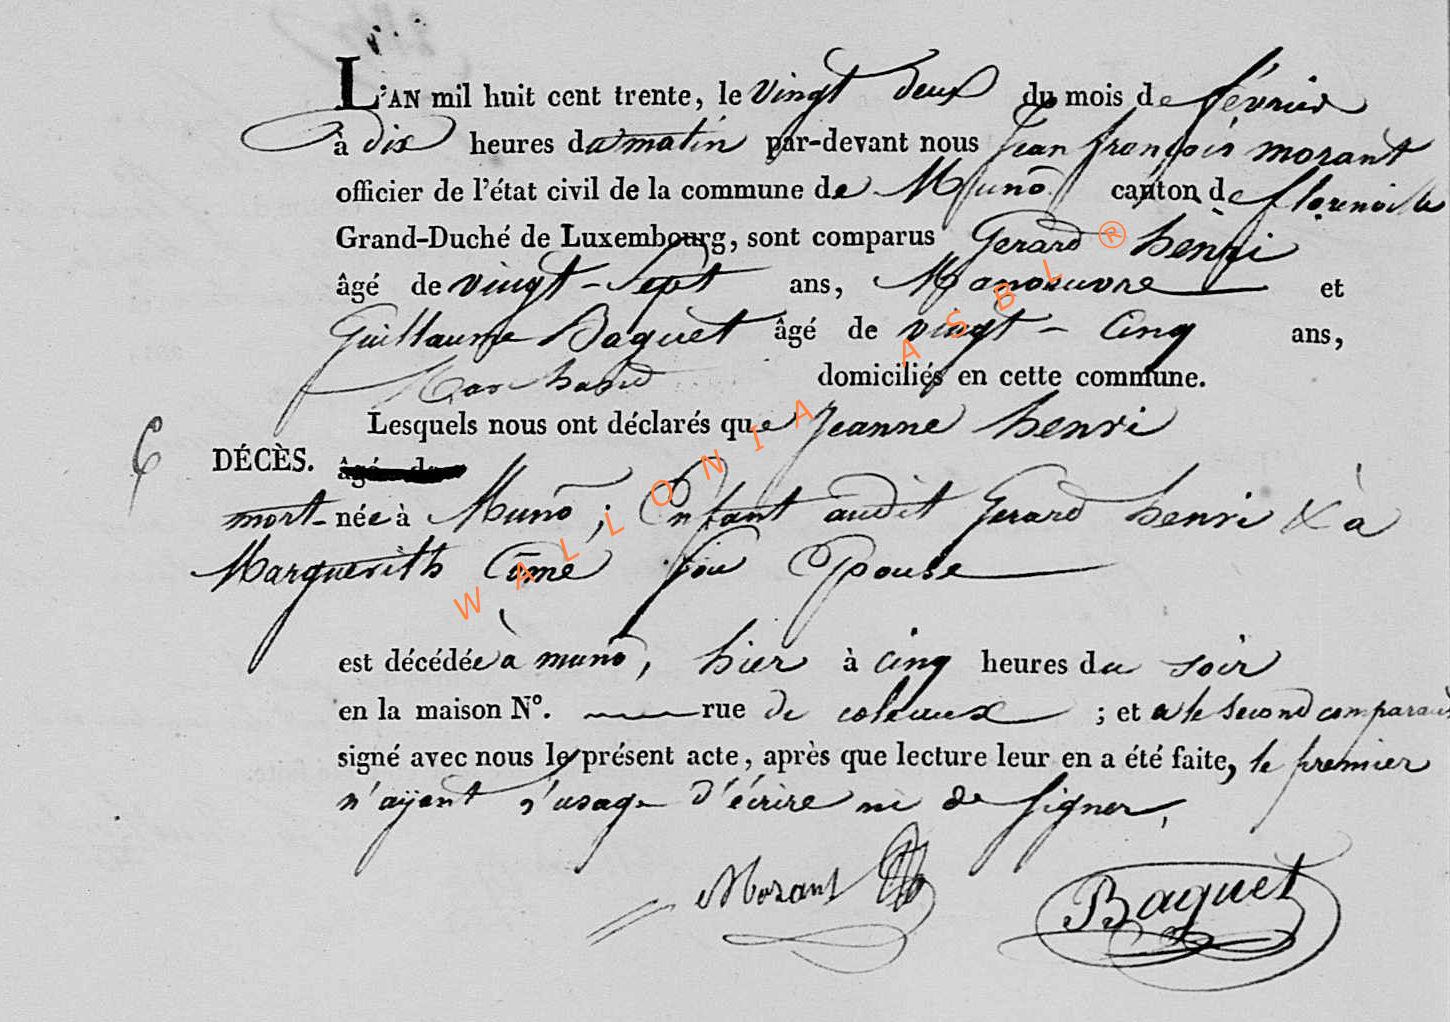 L'AN mil huit cent trente, le vingt deux du mois de février
à dix heures du matin par-devant nous Jean françois morant
officier de l'état civil de la commune de Muno canton de florenville
Grand-Duché de Luxembourg, sont comparus Gerard henri
âgé de vingt-sept ans, Manoeuvre et
Guillaume Baguet âgé de vingt-cinq ans,
Marchand domiciliés en cette commune.
Lesquels nous ont déclarés que Jeanne henri
6 DÉCÈS. âgé de
mort-née à Muno ; Enfant audit Gerard henri & à
Marguerith Côme son Epouse
est décédée à muno, hier à cinq heures du soir
en la maison N°. rue de ; et a le second comparant
signé avec nous le présent acte, après que lecture leur en a été faite, le premier
n'ayant l'usage d'écrire ni de signer.
Morant Baguet
WALLONIA ASBL ®